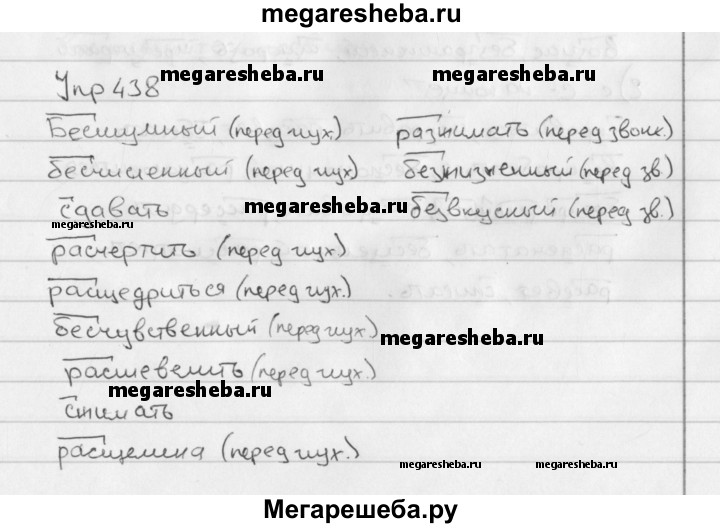 megaresheba.ru
Упр 438
megaresheba.ru
megaresheba.ru
Бесшумный (перед глух.) разжимать (перед звонк.)
бесчисленный (перед глух.) безжизненный (перед зв.)
сдавать megaresheba.ru безвкусный (перед зв.)
megaresheba.ru
расчертить (перед глух.)
расщедриться (перед глух.)
бесчувственный (перед глух.)
megaresheba.ru
расшевелить (перед глух.)
megaresheba.ru
сжимать
расщелина (перед глух.)
megaresheba.ru megaresheba.ru
Мегарешеба.ру